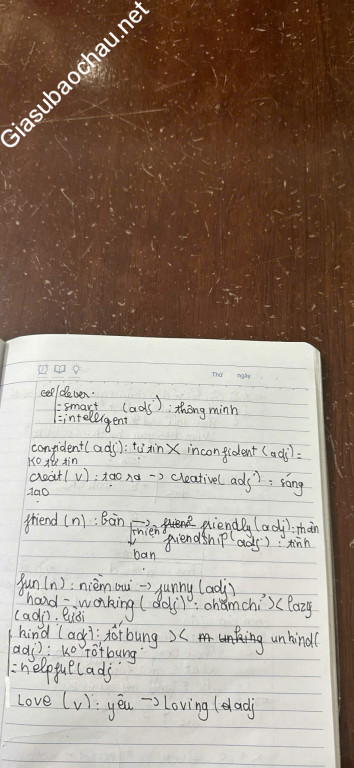 Giasubaochau.net
Thứ ngày
clever
= smart (adj) : thông minh
= intelligent
confident (adj): tự tin X inconfident (adj) =
ko tự tin
creat (v) : tạo ra -> creative (adj) = sáng
tạo
friend (n) : bạn -> friendly (adj) : thân
thiện friendship (adj) : tình
bạn
fun (n) : niềm vui -> funny (adj)
hard - working (adj) : chăm chỉ >< lazy
(adj) : lười
kind (adj) : tốt bụng >< unkind (
adj) : ko tốt bụng
= helpful (adj
Love (v) : yêu -> Loving (adj